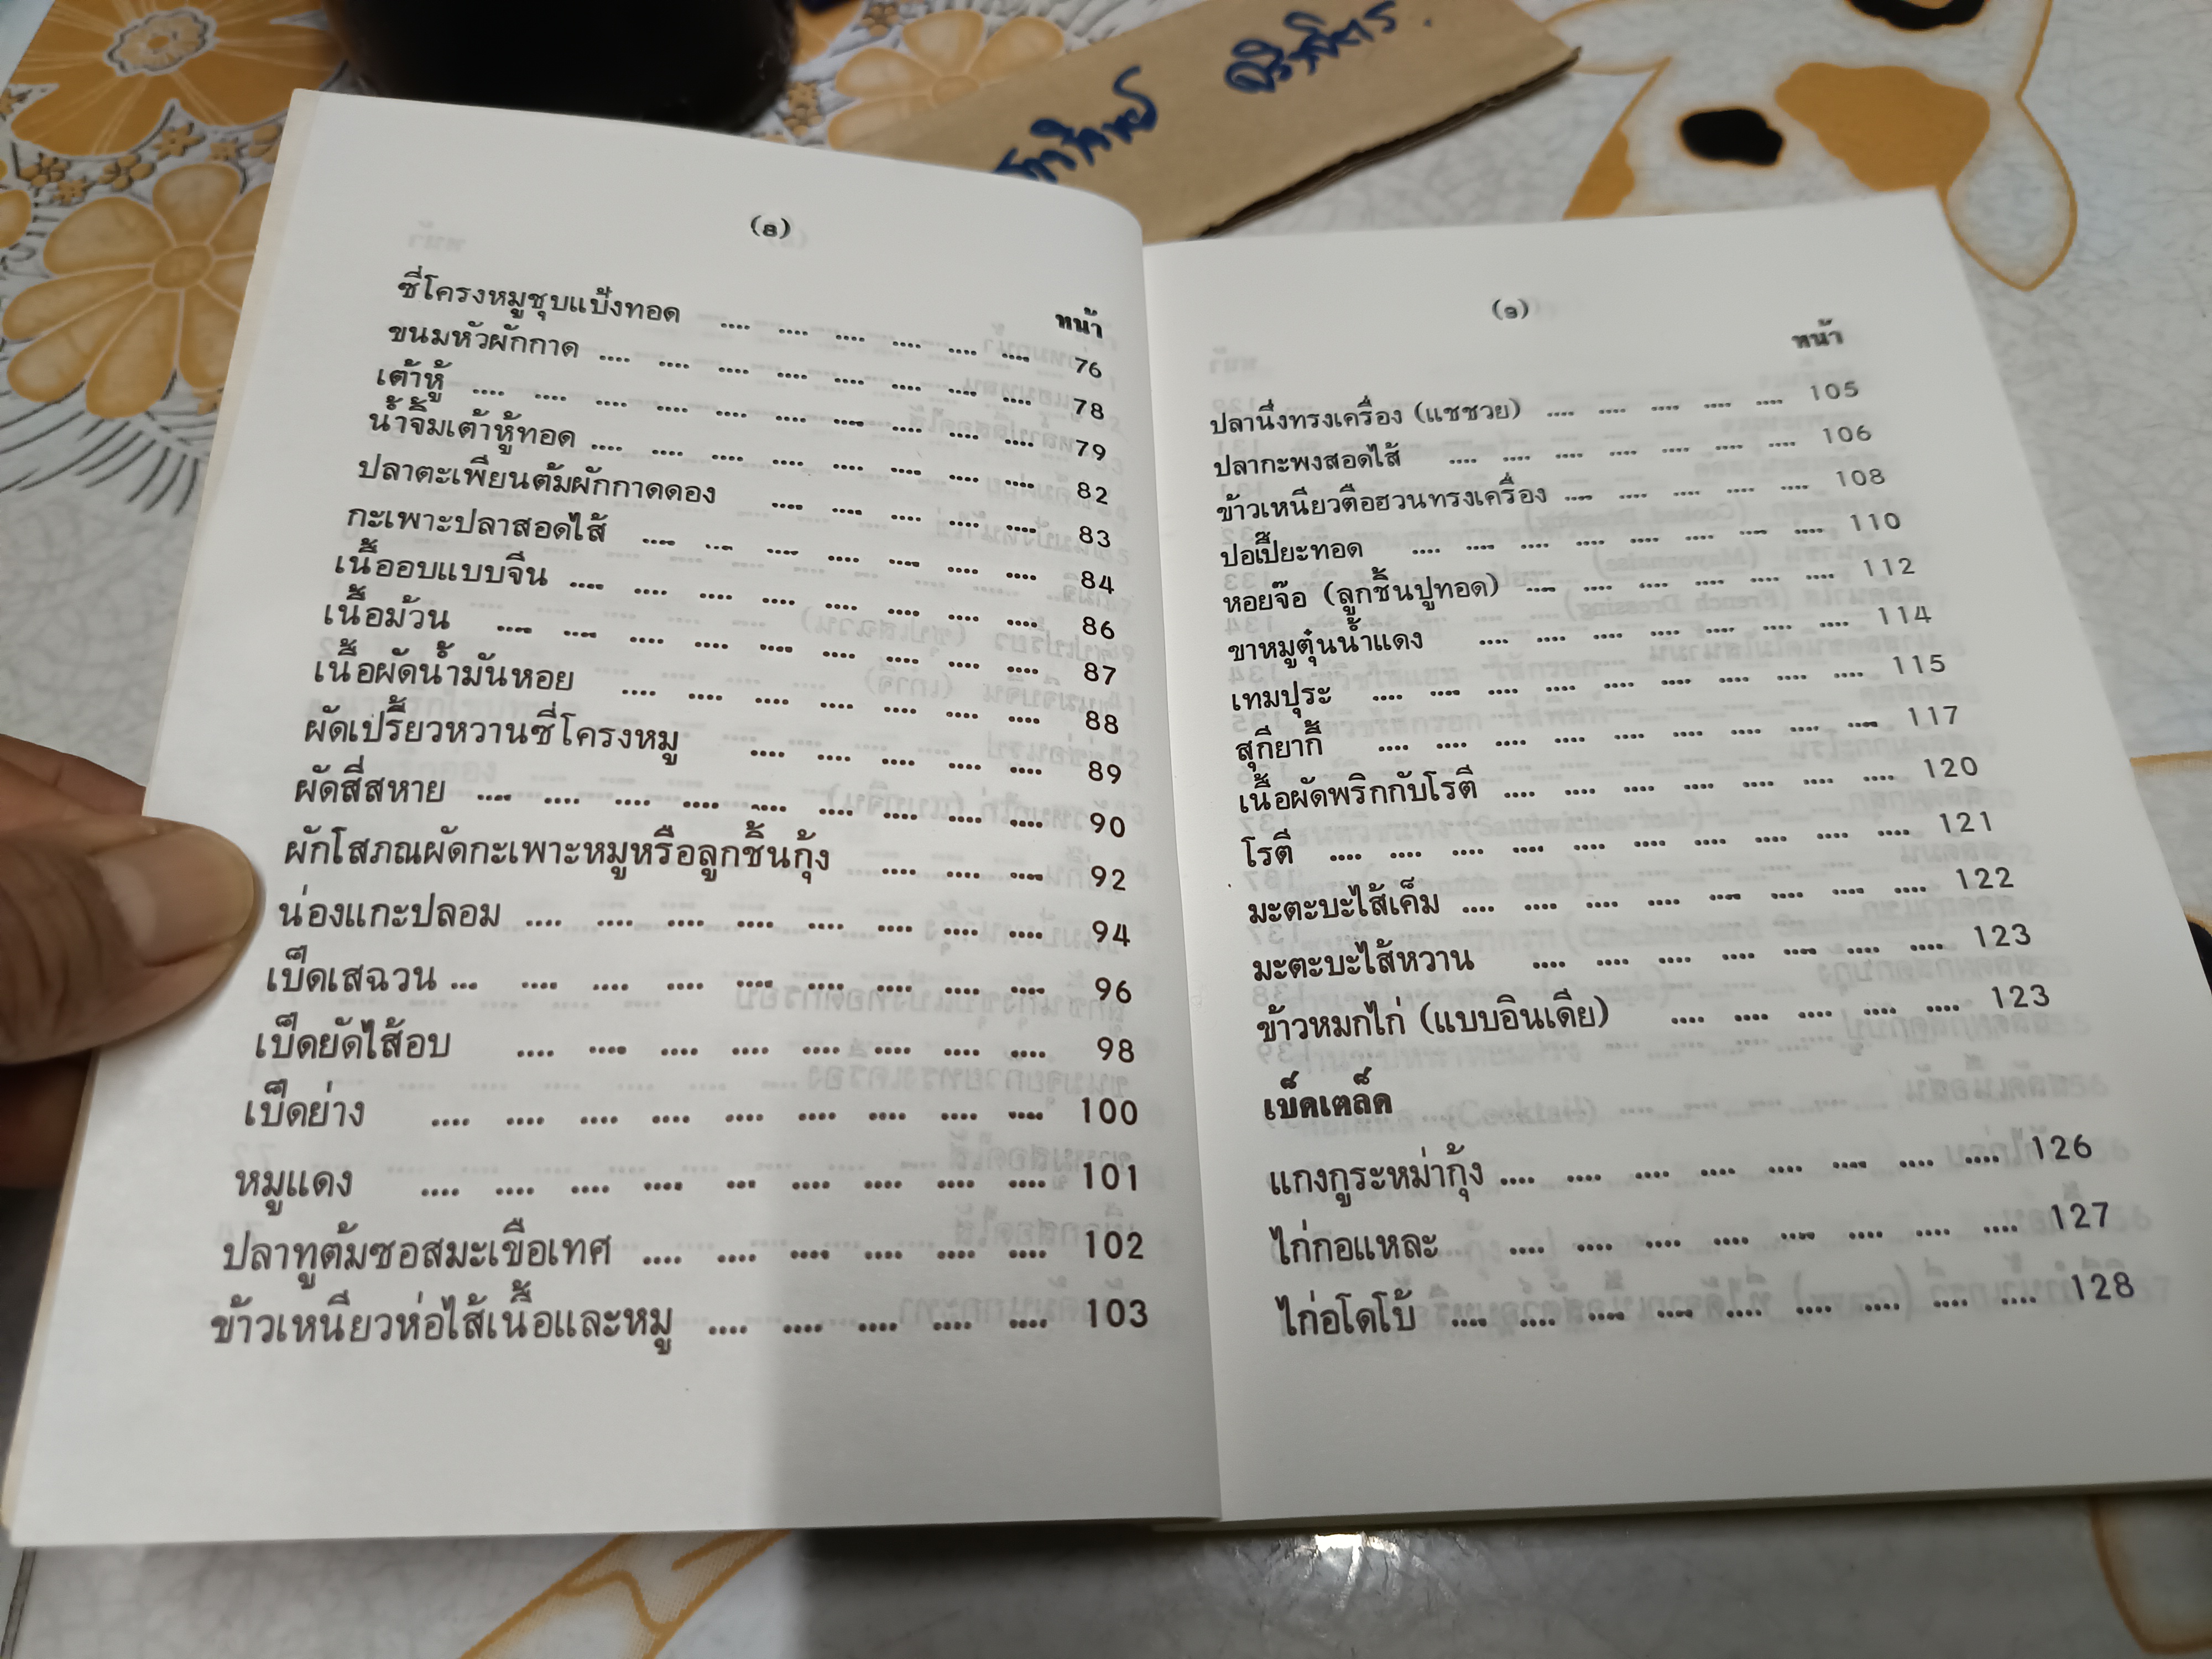 (8)
หน้า
ซี่โครงหมูชุบแป้งทอด .... .... .... .... .... .... 76
ขนมหัวผักกาด .... .... .... .... .... .... .... .... 78
เต้าหู้ .... .... .... .... .... .... .... .... .... .... 79
น้ำจิ้มเต้าหู้ทอด .... .... .... .... .... .... .... .... 82
ปลาตะเพียนต้มผักกาดดอง .... .... .... .... .... 83
กะเพาะปลาสอดไส้ .... .... .... .... .... .... .... 84
เนื้ออบแบบจีน .... .... .... .... .... .... .... .... 86
เนื้อม้วน .... .... .... .... .... .... .... .... .... 87
เนื้อผัดน้ำมันหอย .... .... .... .... .... .... .... 88
ผัดเปรี้ยวหวานซี่โครงหมู .... .... .... .... .... 89
ผัดสี่สหาย .... .... .... .... .... .... .... .... .... 90
ผักโสภณผัดกะเพาะหมูหรือลูกชิ้นกุ้ง .... .... .... 92
น่องแกะปลอม .... .... .... .... .... .... .... .... 94
เป็ดเสฉวน ... .... .... .... .... .... .... .... .... 96
เป็ดยัดไส้อบ .... .... .... .... .... .... .... .... 98
เป็ดย่าง .... .... .... .... .... .... .... .... .... 100
หมูแดง .... .... .... .... ... .... .... .... .... 101
ปลาทูต้มซอสมะเขือเทศ .... .... .... .... .... .... 102
ข้าวเหนียวห่อไส้เนื้อและหมู .... .... .... .... .... 103
หน้า
ปลานึ่งทรงเครื่อง (แชชวย) .... .... .... .... .... 105
ปลากะพงสอดไส้ .... .... .... .... .... .... .... 106
ข้าวเหนียวตือฮวนทรงเครื่อง .... .... .... .... .... 108
ปอเปี๊ยะทอด .... .... .... .... .... .... .... .... 110
หอยจ๊อ (ลูกชิ้นปูทอด) .... .... .... .... .... .... 112
ขาหมูตุ๋นน้ำแดง .... .... .... .... .... .... .... 114
เทมปุระ .... .... .... .... .... .... .... .... .... 115
สุกียากี้ .... .... .... .... .... .... .... .... .... 117
เนื้อผัดพริกกับโรตี .... .... .... .... .... .... .... 120
โรตี .... .... .... .... .... .... .... .... .... .... 121
มะตะบะไส้เค็ม .... .... .... .... .... .... .... .... 122
มะตะบะไส้หวาน .... .... .... .... .... .... .... 123
ข้าวหมกไก่ (แบบอินเดีย) .... .... .... .... .... 123
เบ็ดเตล็ด
แกงกูระหม่ากุ้ง .... .... .... .... .... .... .... .... 126
ไก่กอแหละ .... .... .... .... .... .... .... .... 127
ไก่อโดโบ้ .... .... .... .... .... .... .... .... .... 128